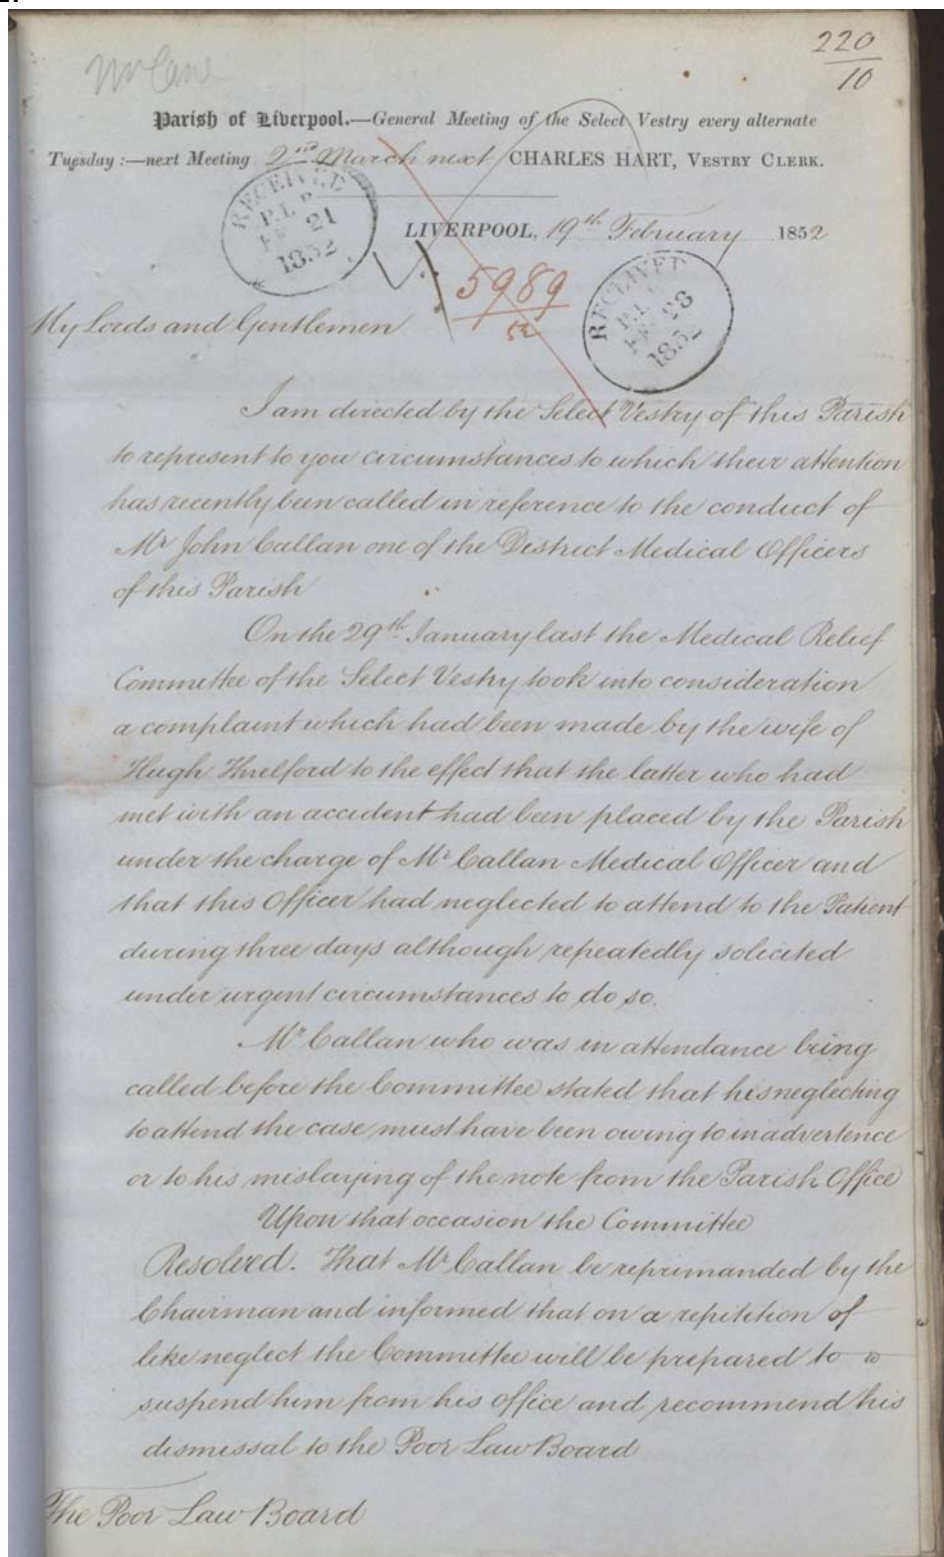 220
10
Parish of Liverpool.—General Meeting of the Select Vestry every alternate
Tuesday:—next Meeting 2nd March next CHARLES HART, VESTRY CLERK.
RECEIVED
P.L.B
FEB 21
1852
LIVERPOOL, 19th February 1852
5989
52
RECEIVED
P.L.
FEB 28
1852
My Lords and Gentlemen
I am directed by the Select Vestry of this Parish
to represent to you circumstances to which their attention
has recently been called in reference to the conduct of
Mr John Callan one of the District Medical Officers
of this Parish
On the 29th January last the Medical Relief
Committee of the Select Vestry took into consideration
a complaint which had been made by the wife of
Hugh Threlford to the effect that the latter who had
met with an accident had been placed by the Parish
under the charge of Mr Callan Medical Officer and
that this Officer had neglected to attend to the Patient
during three days although repeatedly solicited
under urgent circumstances to do so.
Mr Callan who was in attendance being
called before the Committee stated that his neglecting
to attend the case must have been owing to inadvertence
or to his mislaying of the note from the Parish Office
Upon that occasion the Committee
Resolved. That Mr Callan be reprimanded by the
Chairman and informed that on a repitition of
like neglect the Committee will be prepared to
suspend him from his office and recommend his
dismissal to the Poor Law Board
The Poor Law Board